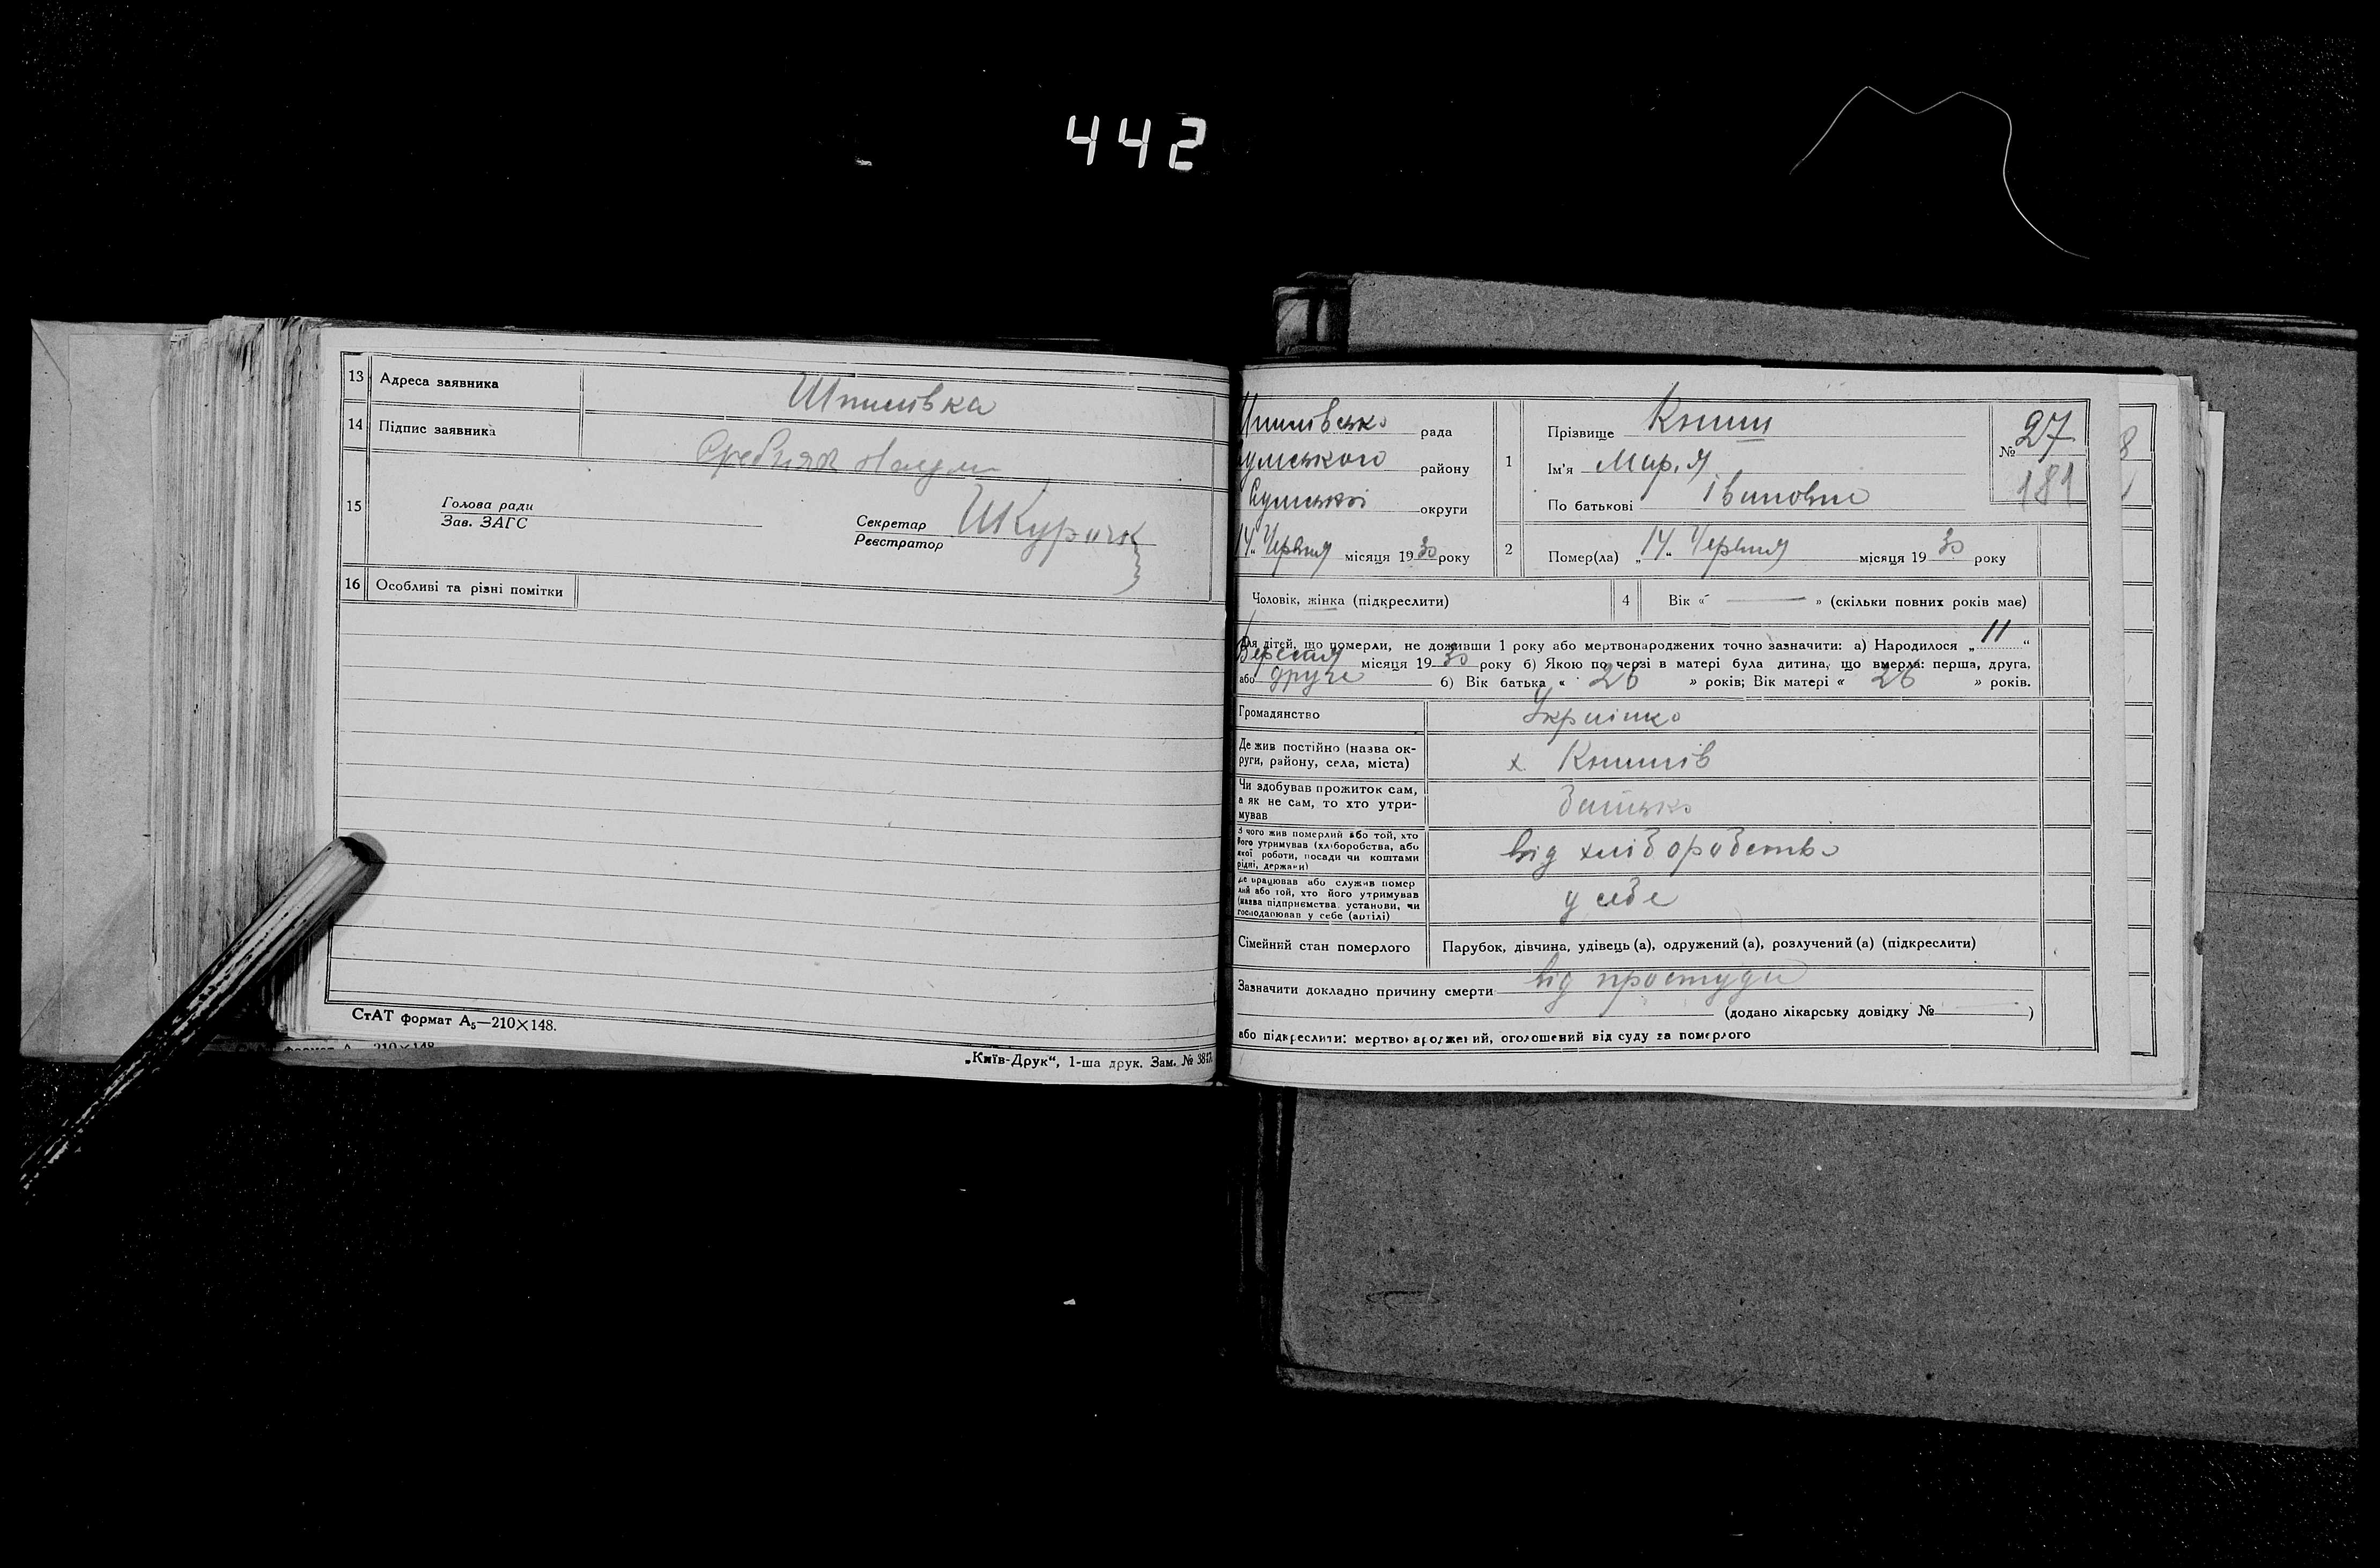 442
13 Адреса заявника Шпилівка
14 Підпис заявника
15 Голова ради
Зав. ЗАГС
Секретар
Реєстратор
16 Особливі та різні помітки
СтАТ формат А5—210×148.
„Київ-Друк“, 1-ша друк. Зам. №
рада
району
Сумської округи
14 „ Червня місяця 1930 року
1 Прізвище Книш
Ім'я Мар,я
По батькові Івановна
№ 27
181
2 Помер(ла) „ 14 „ Червня місяця 19 30 року
Чоловік, жінка (підкреслити)
4 Вік « — » (скільки повних років має)
Для дітей, що померли, не доживши 1 року або мертвонароджених точно зазначити: а) Народилося „ 11 “
місяця 19 30 року б) Якою по черзі в матері була дитина, що вмерла: перша, друга,
або друге б) Вік батька « 26 » років; Вік матері « 26 » років.
Громадянство Українка
Де жив постійно (назва ок-
руги, району, села, міста) х. Книшів
Чи здобував прожиток сам,
а як не сам, то хто утри-
мував батько
З чого жив померлий або той, хто
його утримував (хліборобства, або
якої роботи, посади чи коштами
рідні, держави) від хліборобства
Де працював або служив помер
лий або той, хто його утримував
(назва підприємства, установи, чи
господарював у себе (артілі) у себе
Сімейний стан померлого Парубок, дівчина, удівець (а), одружений (а), розлучений (а) (підкреслити)
Зазначити докладно причину смерти від простуди
(додано лікарську довідку № — )
або підкреслити: мертвонароджений, оголошений від суду за померлого